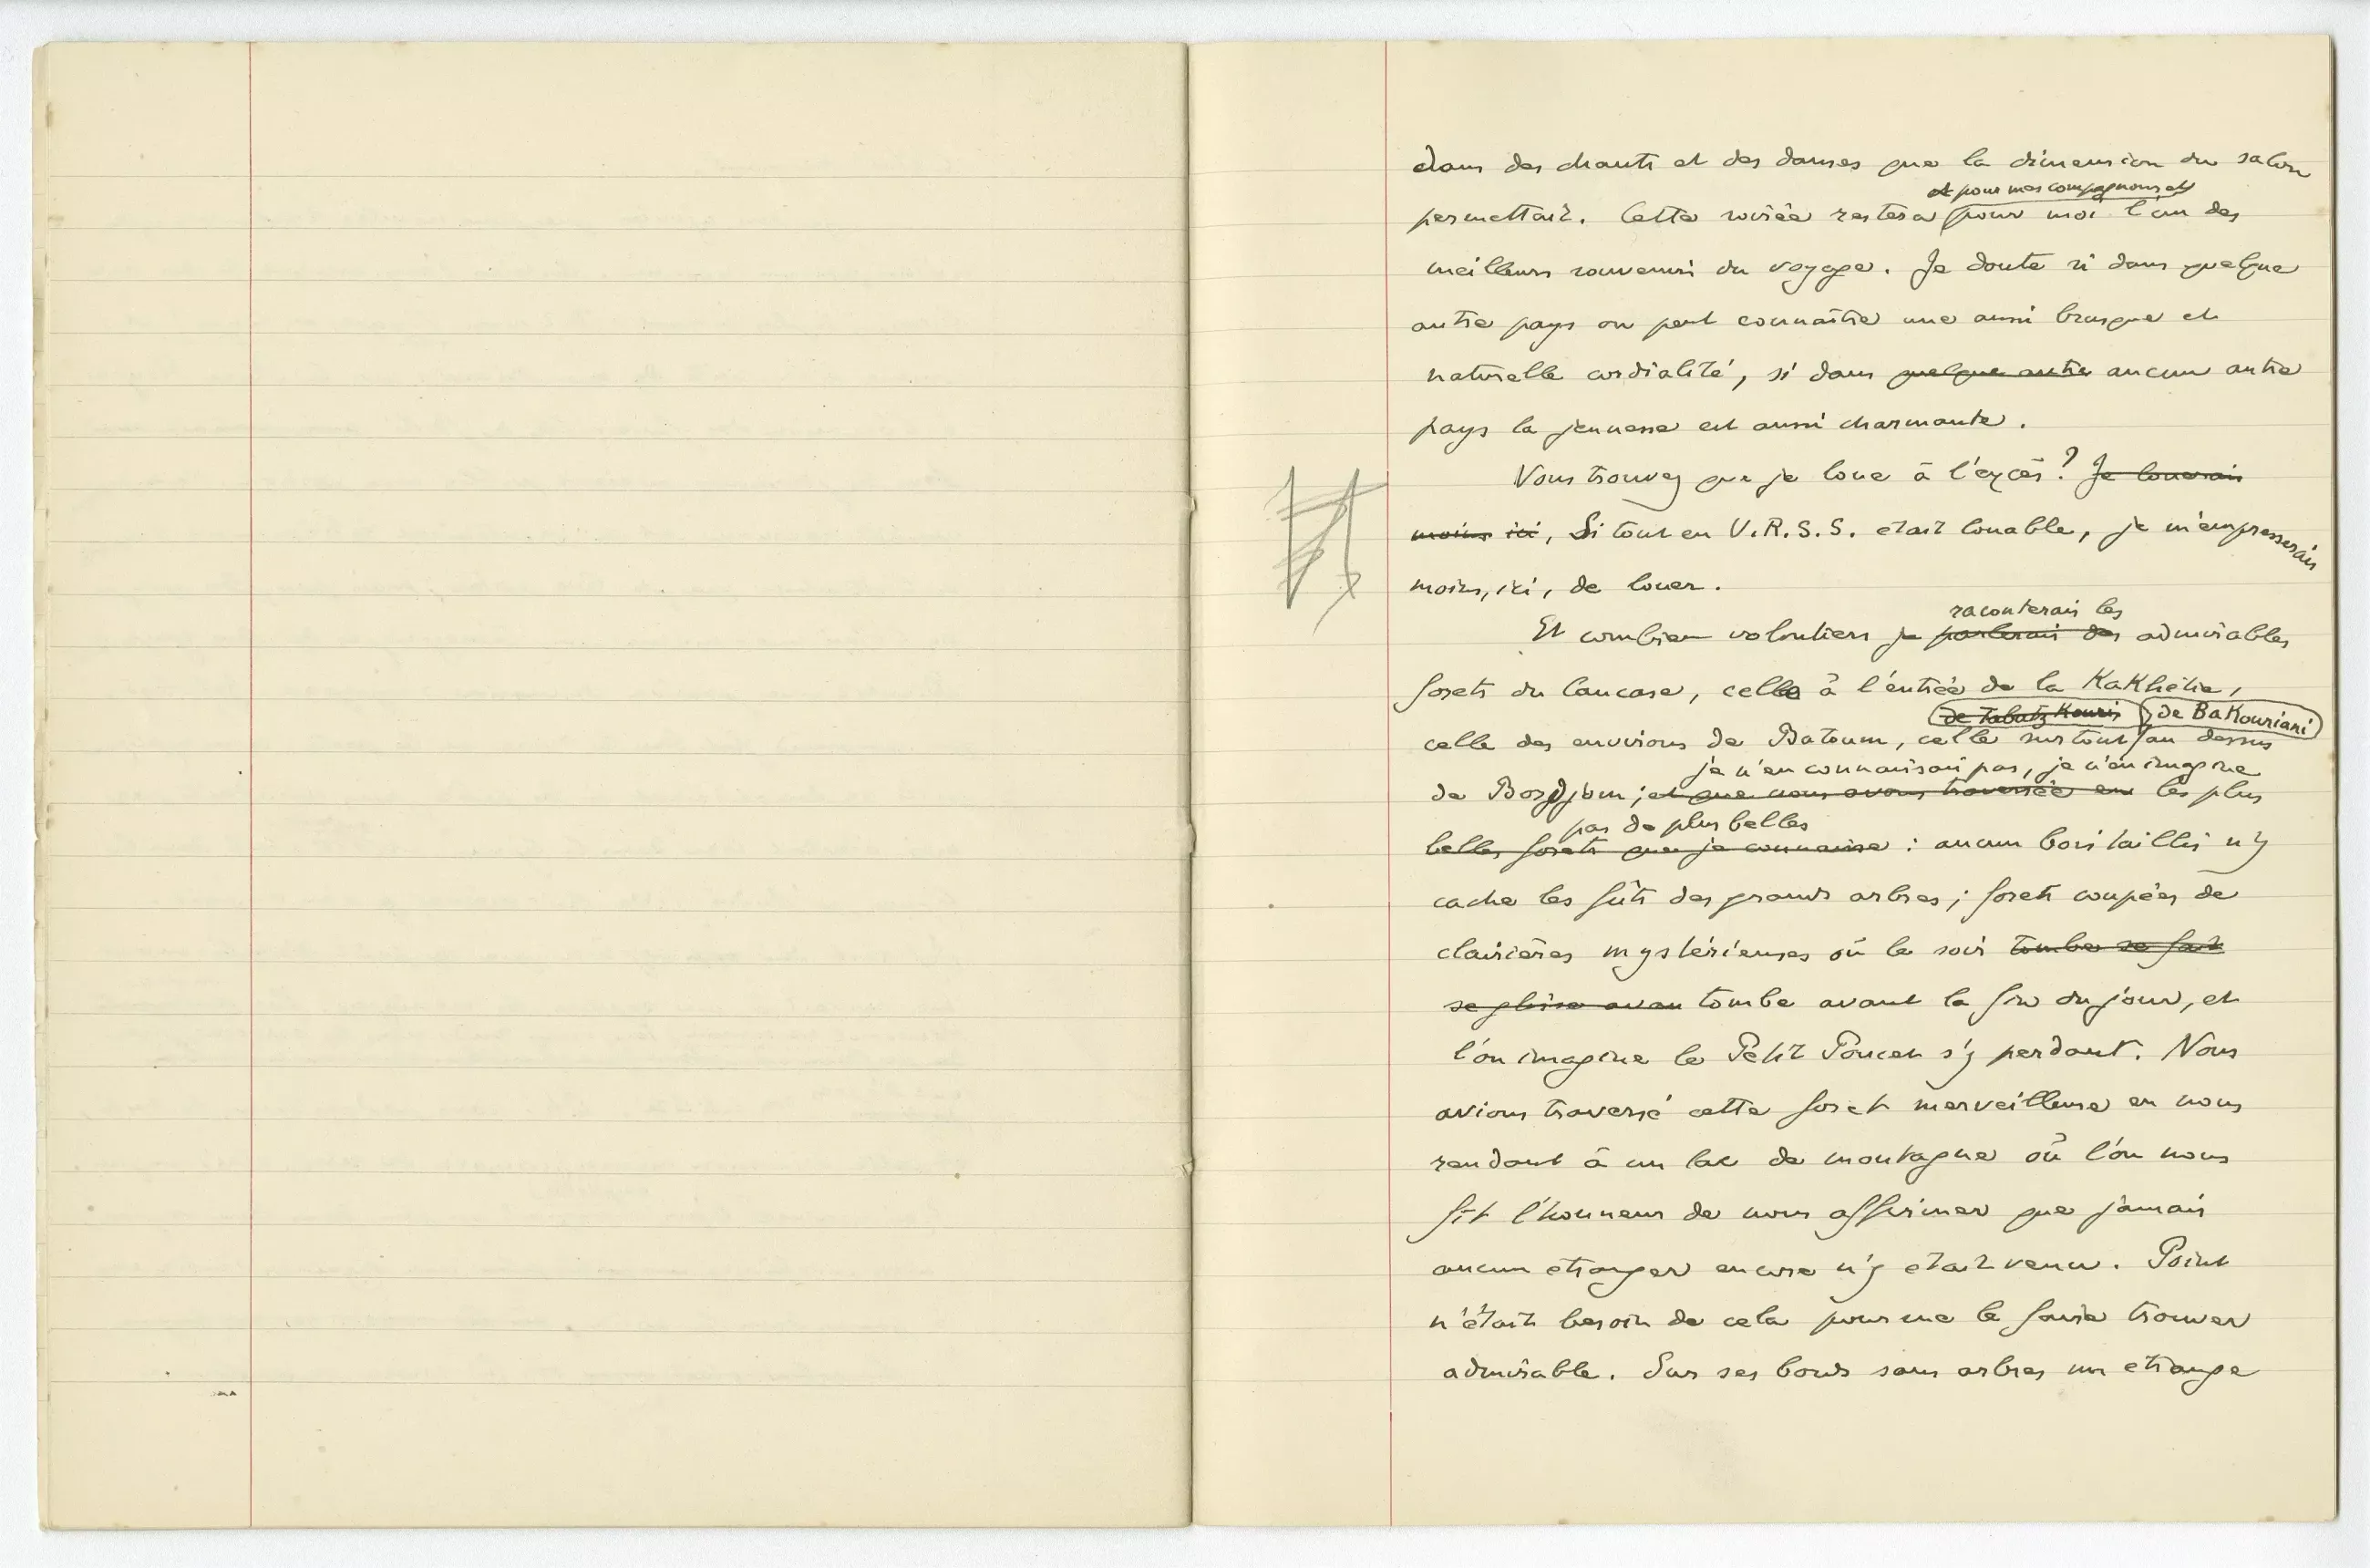 dans des chants et des danses que la dimension du salon
et pour mes compagnons et
permettait. Cette soirée restera pour moi l'un des
meilleurs souvenirs du voyage. Je doute si dans quelque
autre pays on peut connaître une aussi brusque et
naturelle cordialité, si dans quelque autre aucun autre
pays la jeunesse est aussi charmante.
Vous trouvez que je loue à l'excès? Je louerais
moins ici, Si tout en U.R.S.S. était louable, je m'empresserais
moins, ici, de louer.
raconterais les
Et combien volontiers je parlerais des admirables
forets du Caucase, celle à l'entrée de la Kakhétie,
de Tabatzkouri, de Bakouriani
celle des environs de Batoum, celle surtout au dessus
je n'en connaissais pas, je n'en imagine
de Bordjom; et que nous avons traversée en les plus
pas de plus belles
belles forets que je connaisse : aucun bois taillis n'y
cache les fûts des grands arbres; forets coupées de
clairières mystérieuses où le soir tombe se fait
se glisse avan tombe avant la fin du jour, et
l'on imagine le Petit Poucet s'y perdant. Nous
avions traversé cette foret merveilleuse en nous
rendant à un lac de montagne où l'on nous
fit l'honneur de nous affirmer que jamais
aucun étranger encore n'y était venu. Point
n'était besoin de cela pour me le faire trouver
admirable. Sur ses bords sans arbres un étrange